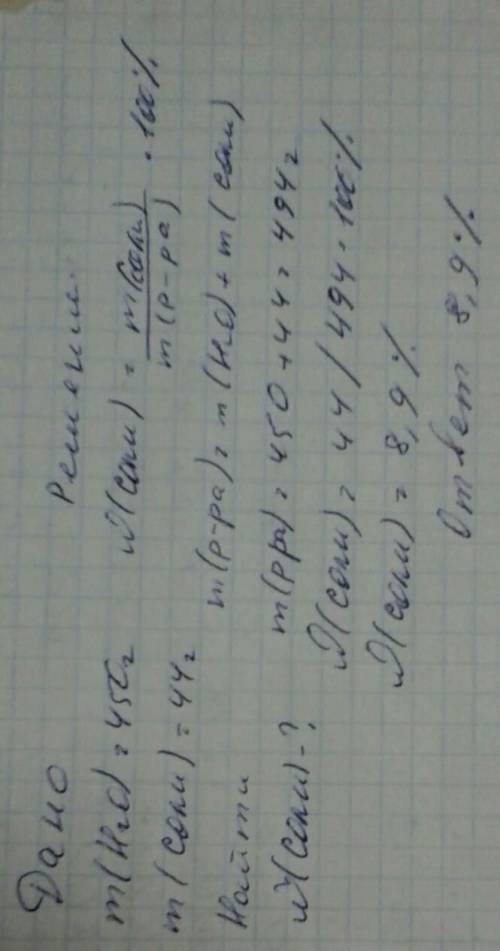 Дано
m(H2O) = 450г
m(соли) = 44г
Найти
W(соли)-?
Решение
W(соли) = m(соли) / m(р-ра) · 100%
m(р-ра) = m(H2O) + m(соли)
m(рра) = 450 + 44 = 494г
W(соли) = 44 / 494 · 100%
W(соли) = 8,9%
Ответ 8,9%